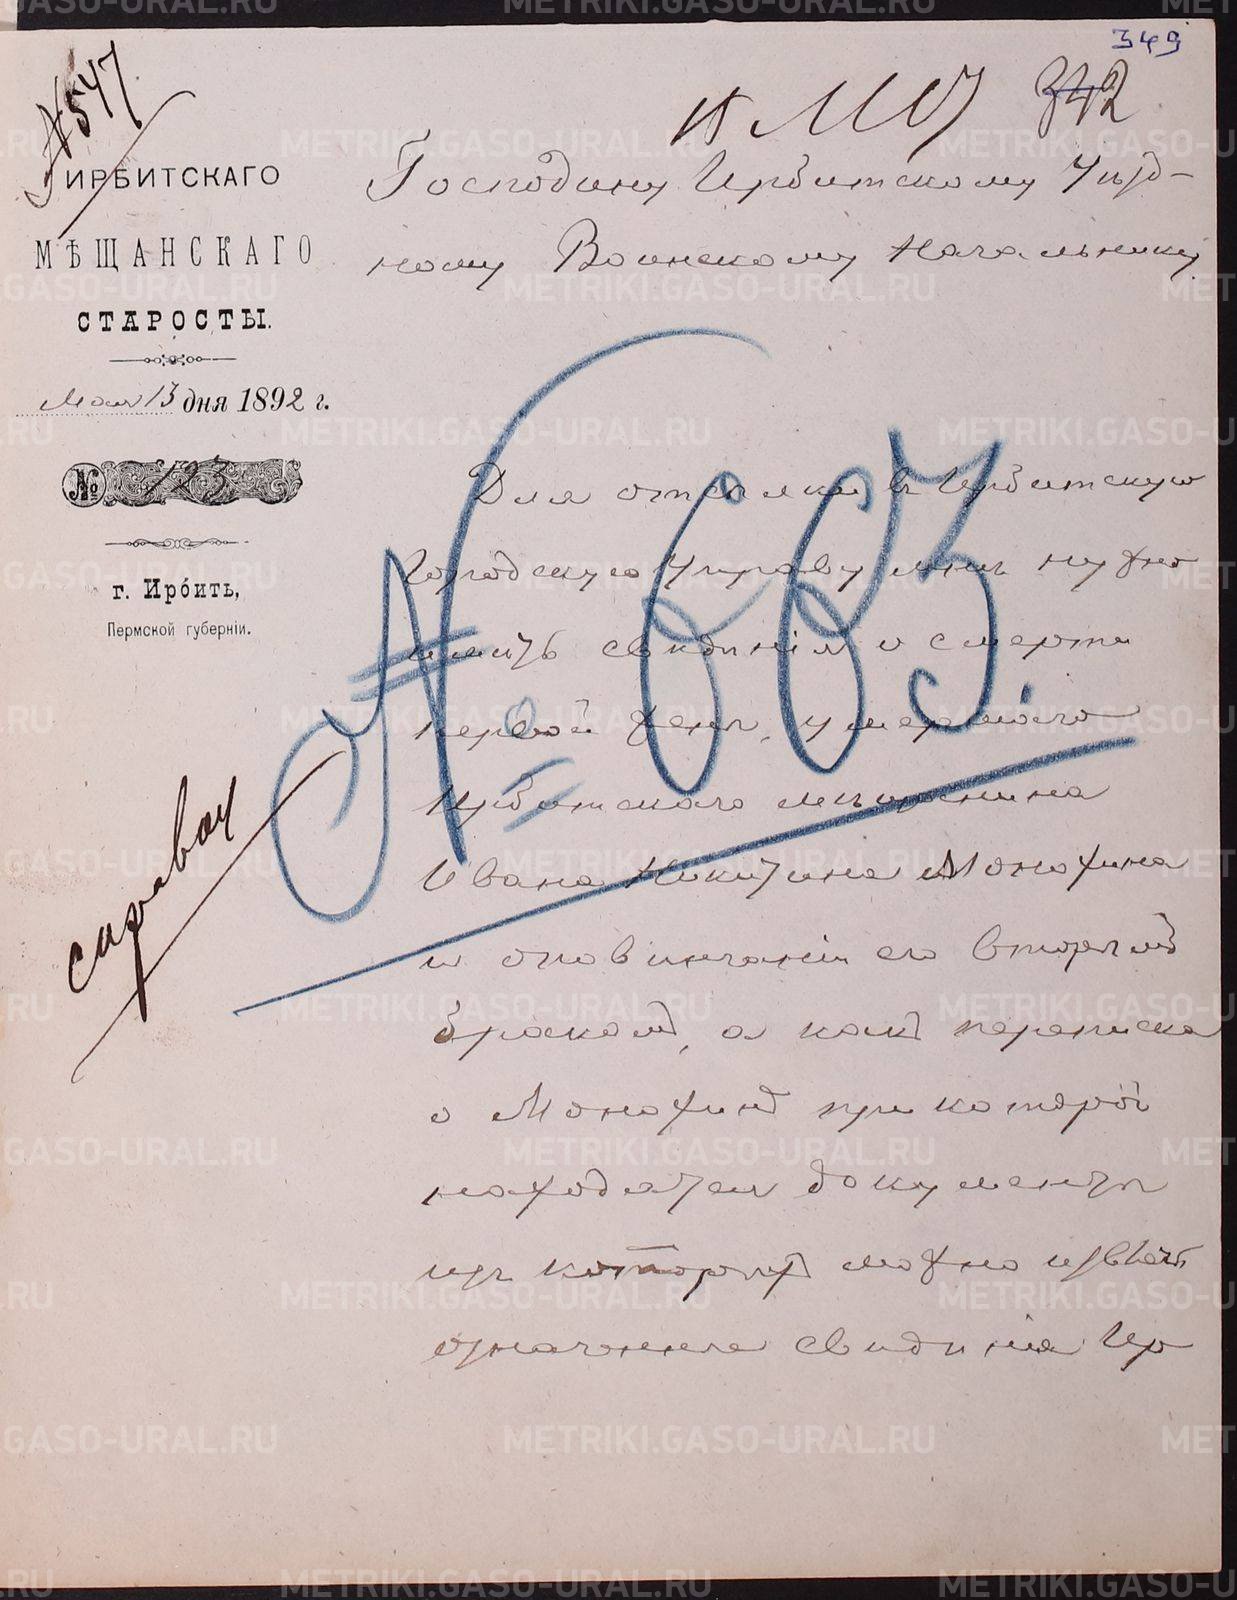 349
342
№547
ИРБИТСКАГО
МѢЩАНСКАГО
СТАРОСТЫ.
Мая 13 дня 1892 г.
№ 193
г. Ирбитъ,
Пермской губерніи.
Господину Ирбитскому Уѣзд-
ному Воинскому Начальнику
№ 663.
справку
Для отсылки въ Ирбитскую
Городскую Управу мнѣ нужно
имѣть свидинія о смерти
первой жены, умершаго
Ирбитскаго мѣщанина
Ивана Никитина Монахина
и о повинчаніи его вторымъ
бракомъ, а какъ переписка
о Монахинѣ при которой
находятся документы
изъ которыхъ можно извлечь
означенные свидинія Ир